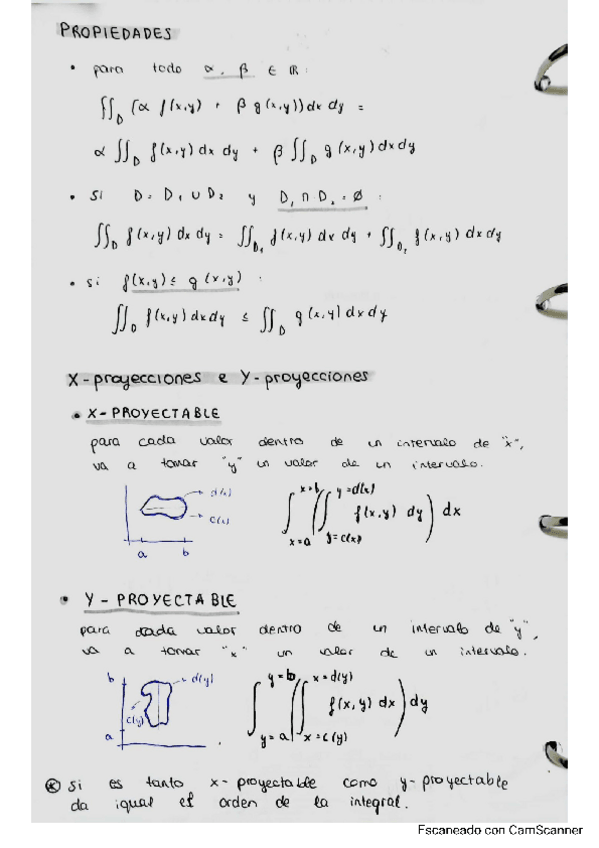 PROPIEDADES
• para todo α, β ∈ ℝ :
∬_D (α f(x,y) + β g(x,y)) dx dy =
α ∬_D f(x,y) dx dy + β ∬_D g(x,y) dx dy
• si D = D₁ ∪ D₂ y D₁ ∩ D₂ = ∅ :
∬_D f(x,y) dx dy = ∬_D₁ f(x,y) dx dy + ∬_D₂ f(x,y) dx dy
• si f(x,y) ≤ g(x,y) :
∬_D f(x,y) dx dy ≤ ∬_D g(x,y) dx dy
X-proyecciones e Y-proyecciones
• X-PROYECTABLE
para cada valor dentro de un intervalo de "x",
va a tomar "y" un valor de un intervalo.
d(x)
c(x)
a b
∫_{x=a}^{x=b} (∫_{y=c(x)}^{y=d(x)} f(x,y) dy) dx
• Y-PROYECTABLE
para cada valor dentro de un intervalo de "y",
va a tomar "x" un valor de un intervalo.
b
d(y)
c(y)
a
∫_{y=a}^{y=b} (∫_{x=c(y)}^{x=d(y)} f(x,y) dx) dy
si es tanto x-proyectable como y-proyectable
da igual el orden de la integral.
Escaneado con CamScanner